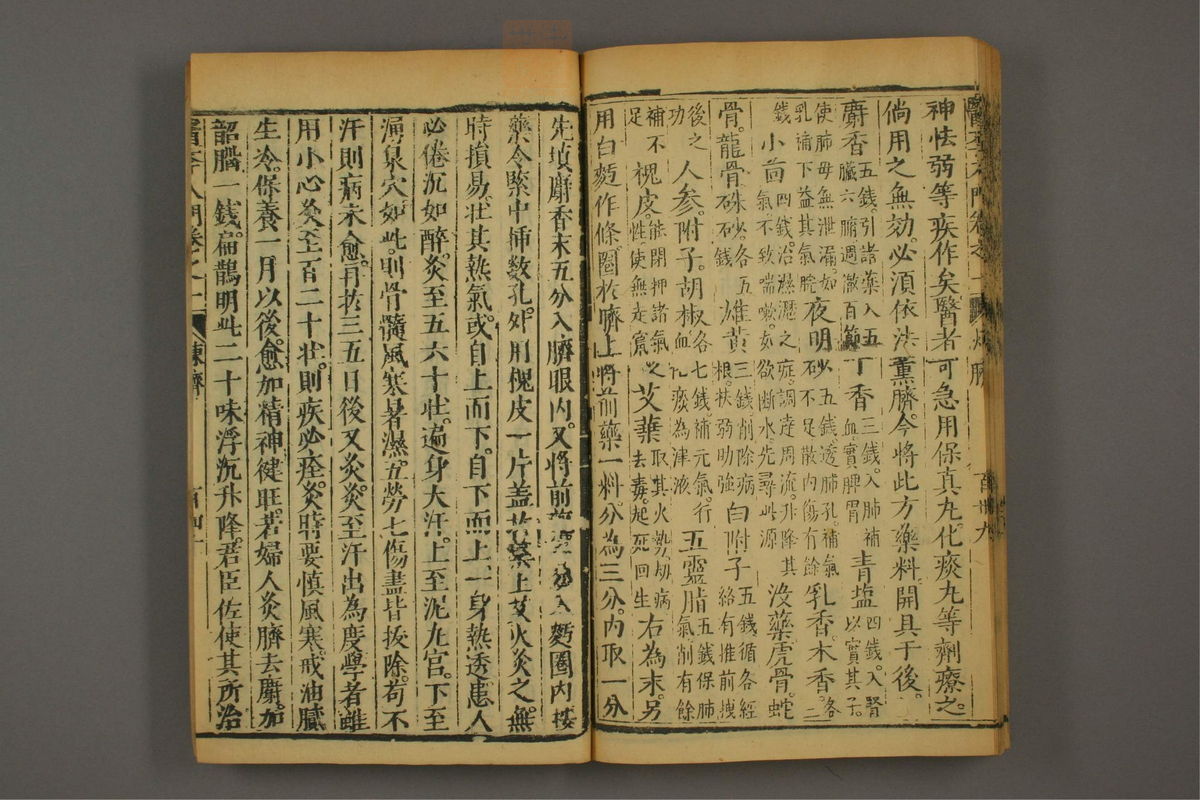 神怯弱等疾作矣醫者可急用保真丸化痰丸等劑療之
倘用之無効必須依法薰臍今將此方藥料開具于後
麝香五錢引諸藥入五臟六腑週澈百節丁香三錢入肺補血實脾胃青塩四錢入腎以實其子
使肺母無泄漏如乳哺下益其氣脘夜明砂五錢透肺孔補氣不足散內傷有餘乳香木香各二
錢小茴四錢治濕瀝之氣不致喘嗽如症調達周流升降其欲斷水先尋此源沒藥虎骨蛇
骨龍骨硃砂各五錢雄黃三錢削除病根扶弱助強白附子五錢循各經絡有推前拽
後之功人參附子胡椒各七錢補元氣行血化痰為津液五靈脂五錢保肺氣削有餘
補不足槐皮能閉押諸氣性使無走竄之艾葉取其火勢刼病去毒起死回生右為末另
用白麪作條圈於臍上將前藥一料分為三分內取一分
先填麝香末五分入臍眼內又將前藥入麪圈內按
藥令緊中揷数孔外用槐皮一片盖於藥上艾火灸之無
時損易壯其熱氣或自上而下自下而上一身熱透患人
必倦沉如醉灸至五六十壯遍身大汗上至泥丸宮下至
湧泉穴如此則骨髓風寒暑濕五勞七傷盡皆拔除苟不
汗則病未愈再於三五日後又灸灸至汗出為度學者雖
用小心灸至百二十壯則疾必痊灸時要慎風寒戒油膩
生冷保養一月以後愈加精神健旺若婦人灸臍去麝加
韶腦一錢扁鵲明此二十味浮沉升降君臣佐使其所治